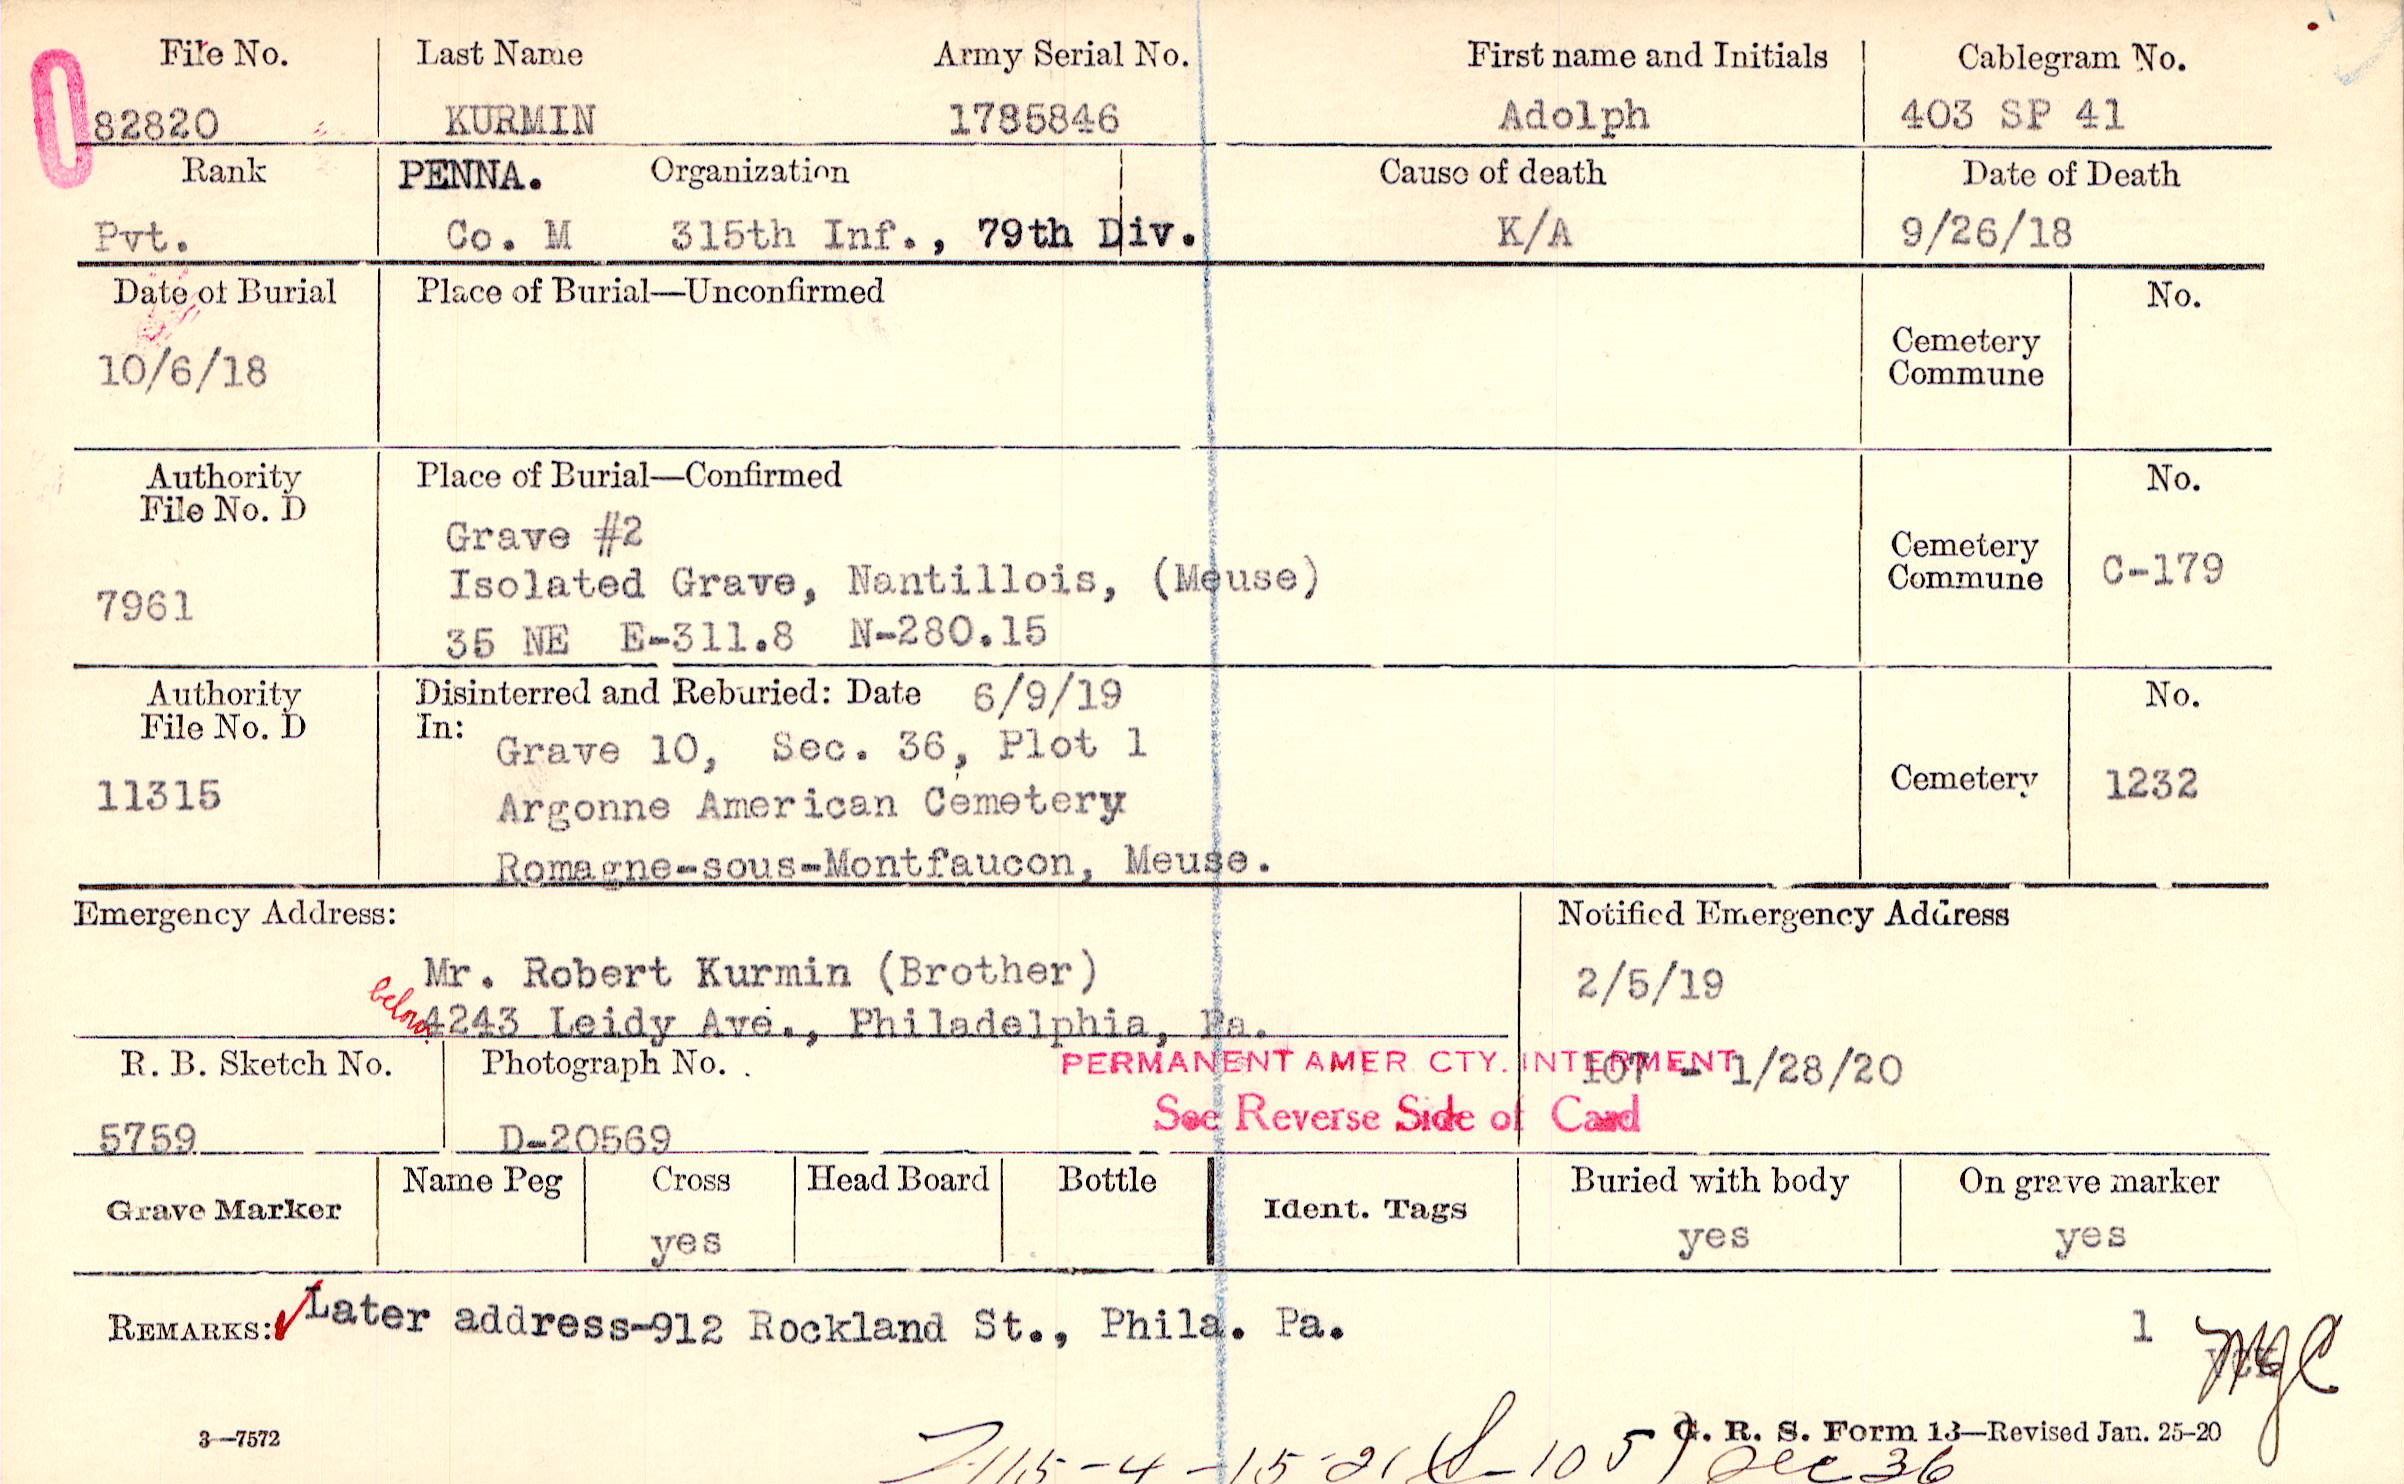 File No. Last Name Army Serial No. First name and Initials Cablegram No.
82820 KURMIN 1785846 Adolph 403 SP 41
Rank PENNA. Organization Cause of death Date of Death
Pvt. Co. M 315th Inf., 79th Div. K/A 9/26/18
Date of Burial Place of Burial—Unconfirmed No.
10/6/18 Cemetery
Commune
Authority Place of Burial—Confirmed No.
File No. D
Grave #2
Cemetery
7961 Isolated Grave, Nantillois, (Meuse) Commune C-179
35 NE E-311.8 N-280.15
Authority Disinterred and Reburied: Date 6/9/19 No.
File No. D In:
Grave 10, Sec. 36, Plot 1
11315 Argonne American Cemetery Cemetery 1232
Romagne-sous-Montfaucon, Meuse.
Emergency Address: Notified Emergency Address
Mr. Robert Kurmin (Brother) 2/5/19
below 4243 Leidy Ave., Philadelphia, Pa.
R. B. Sketch No. Photograph No. PERMANENT AMER. CTY. INTERMENT 107 - 1/28/20
See Reverse Side of Card
5759 D-20569
Grave Marker Name Peg Cross Head Board Bottle Ident. Tags Buried with body On grave marker
yes yes yes
REMARKS: Later address-912 Rockland St., Phila. Pa. 1
3—7572 G. R. S. Form 13—Revised Jan. 25-20